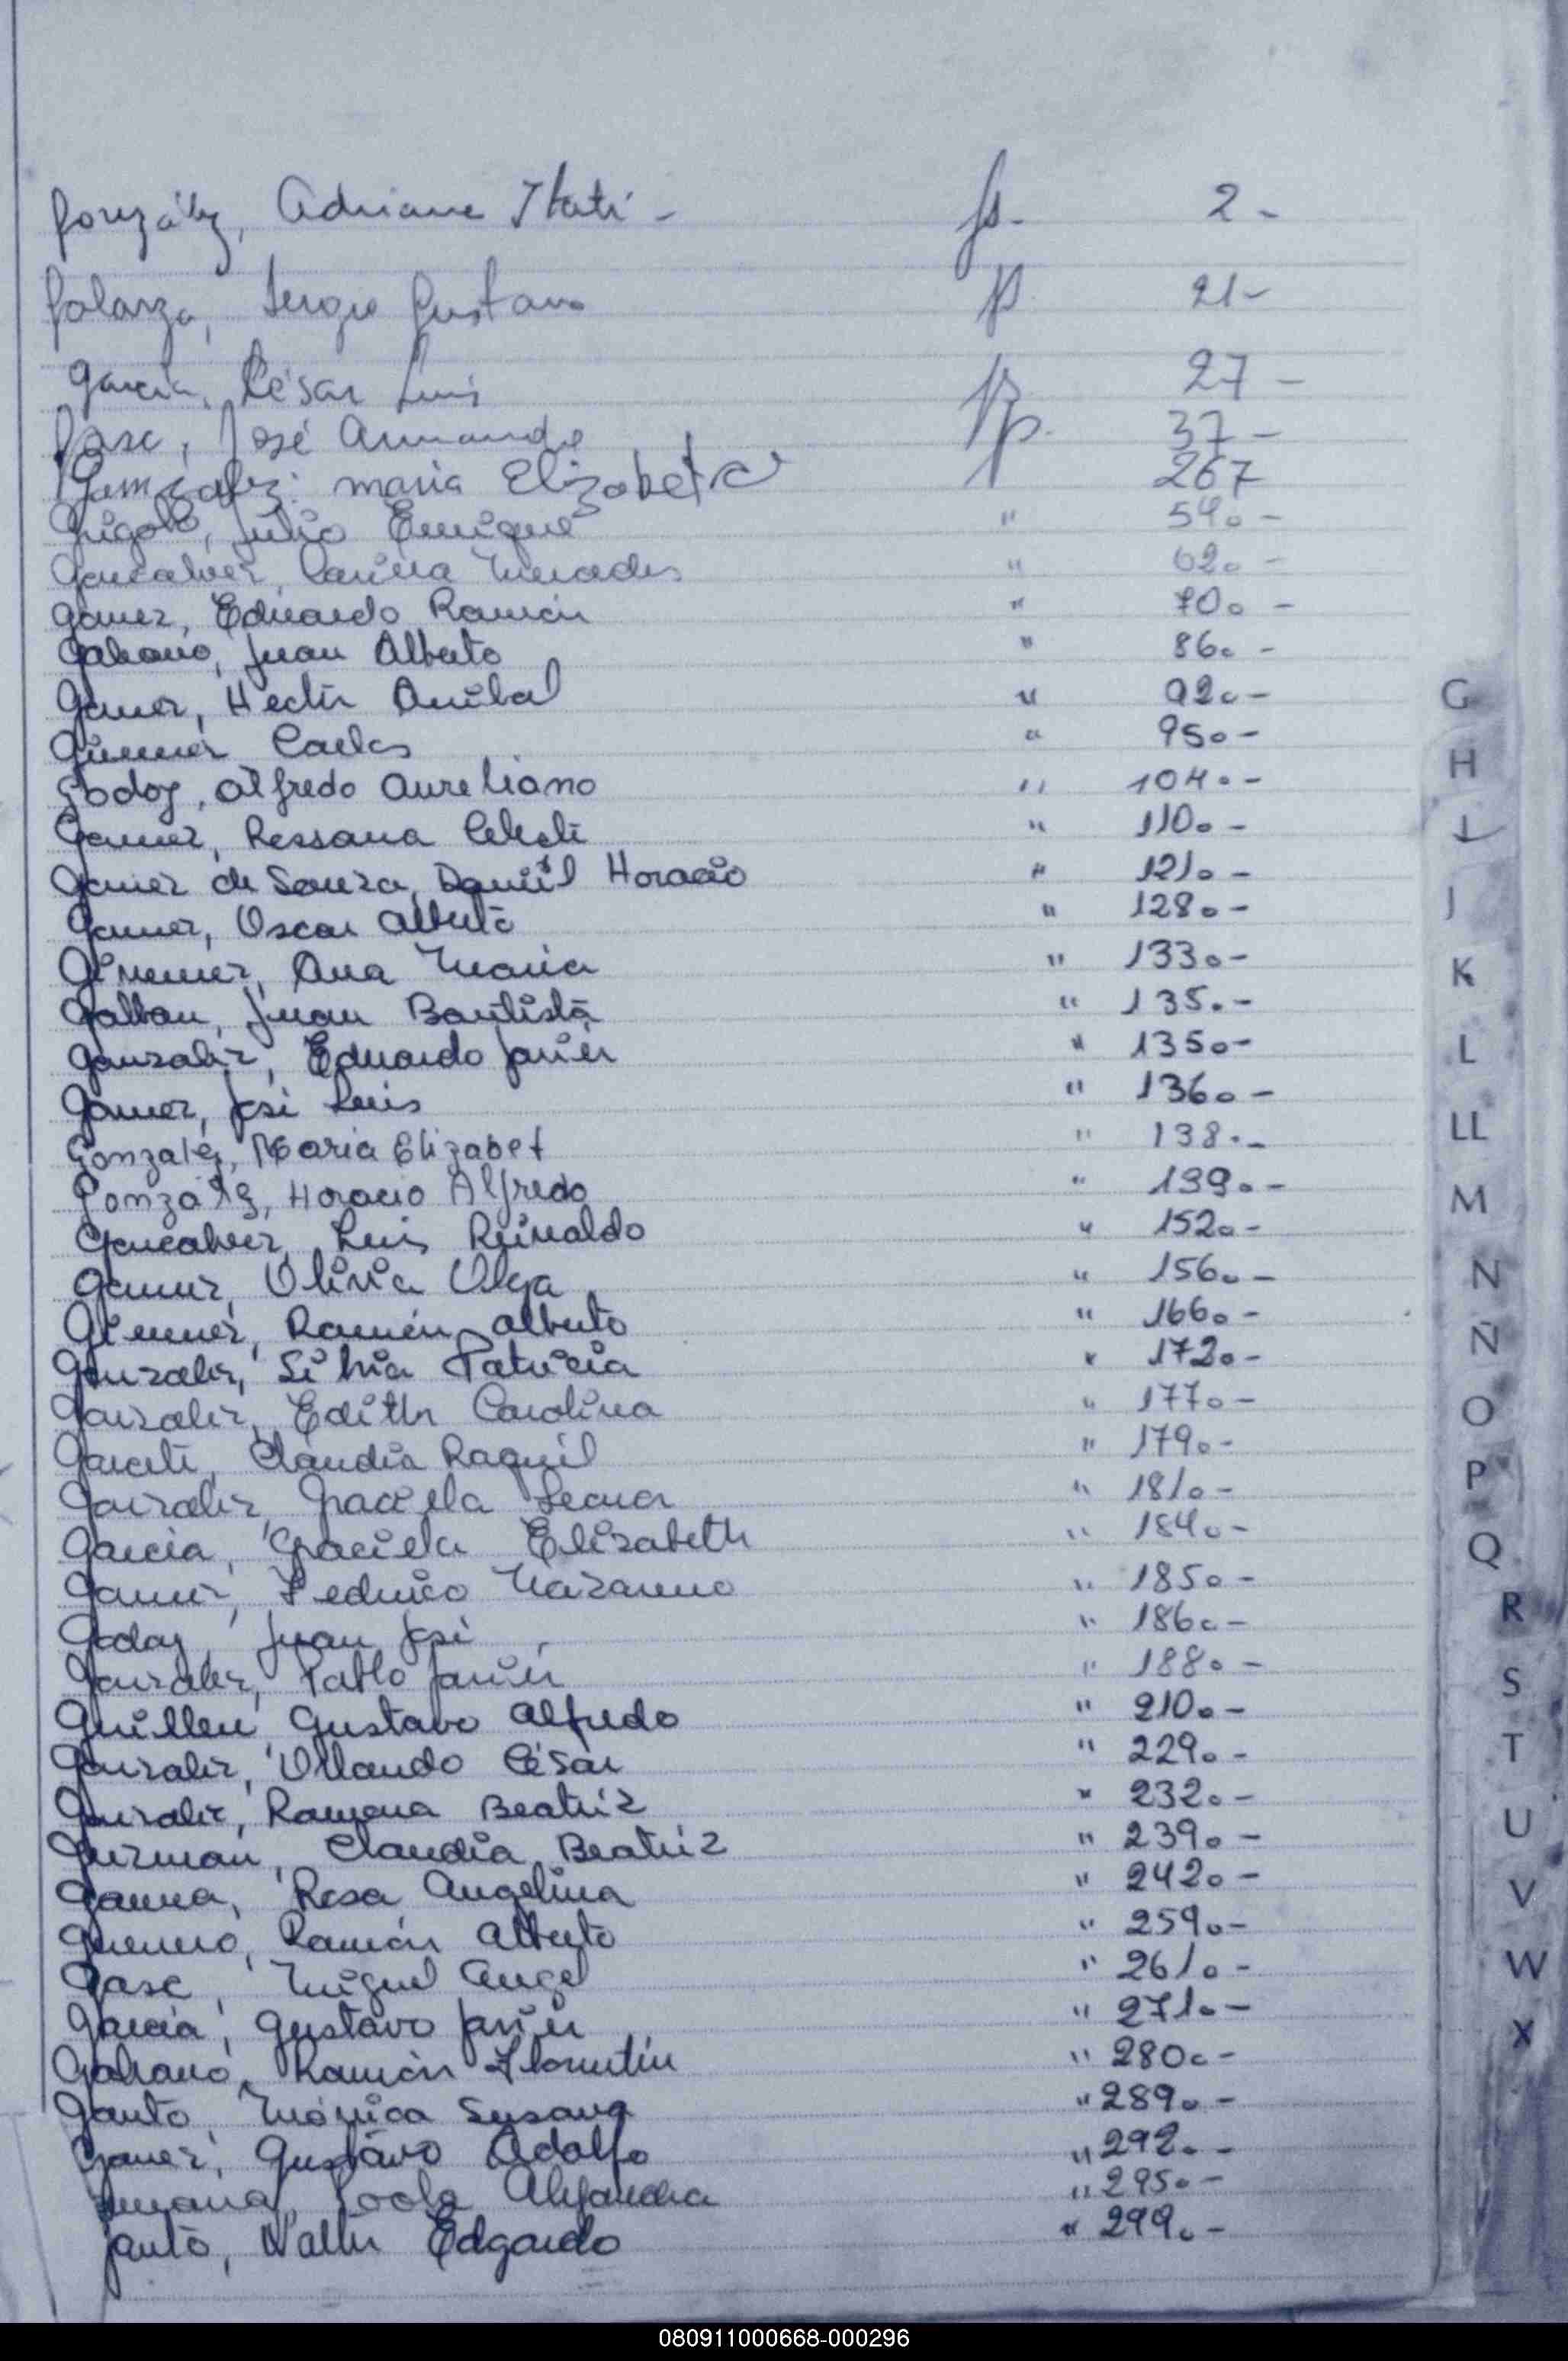 González, Adriana Itatí - fs. 2 -
Galarza, Sergio Gustavo fs. 21 -
García, César Luis fs 27 -
Gasc, José Armando fs. 37 -
González. maria Elizabeth 267
Julio Enrique " 54. -
Goncalvez, Carina Mercedes " 62. -
Gomez, Eduardo Ramón " 70. -
Galeano, Juan Alberto " 86. -
Gomez, Hector Anibal " 92. -
Gimenez Carlos " 95. -
Godoy, Alfredo Aureliano " 104. -
Gomez, Rossana Celeste " 110. -
Gomez de Souza, Daniel Horacio " 121. -
Gomez, Oscar Alberto " 128. -
Gimenez, Ana Maria " 133. -
Galban, Juan Bautista " 135. -
Gonzalez, Eduardo Javier " 135. -
Gomez, José Luis " 136. -
Gonzalez, Maria Elizabet " 138. -
González, Horacio Alfredo " 139. -
Goncalvez, Luis Reinaldo " 152. -
Gomez, Olivia Olga " 156. -
Gimenez, Ramón Alberto " 166. -
Gonzalez, Silvia Patricia " 172. -
Gonzalez, Edith Carolina " 177. -
Garcete, Claudia Raquel " 179. -
Gonzalez, Graciela Leonor " 181. -
Garcia, Graciela Elizabeth " 184. -
Gomez, Federico Nazareno " 185. -
Godoy, Juan José " 186. -
Gonzalez, Pablo Javier " 188. -
Guillen Gustavo Alfredo " 210. -
Gonzalez, Orlando César " 229. -
Gonzalez, Ramona Beatriz " 232. -
Guzman, Claudia Beatriz " 239. -
Gauna, Rosa Angelina " 242. -
Guerrero, Ramón Alberto " 259. -
Gasc, Miguel Angel " 261. -
Garcia, Gustavo Javier " 271. -
Galeano, Ramón Florentin " 280. -
Gauto, Mónica Susana " 289. -
Gomez, Gustavo Adolfo " 292. -
Alejandra " 295. -
Gauto, Walter Edgardo " 299. -
G
H
I
J
K
L
LL
M
N
Ñ
O
P
Q
R
S
T
U
V
W
X
080911000668-000296